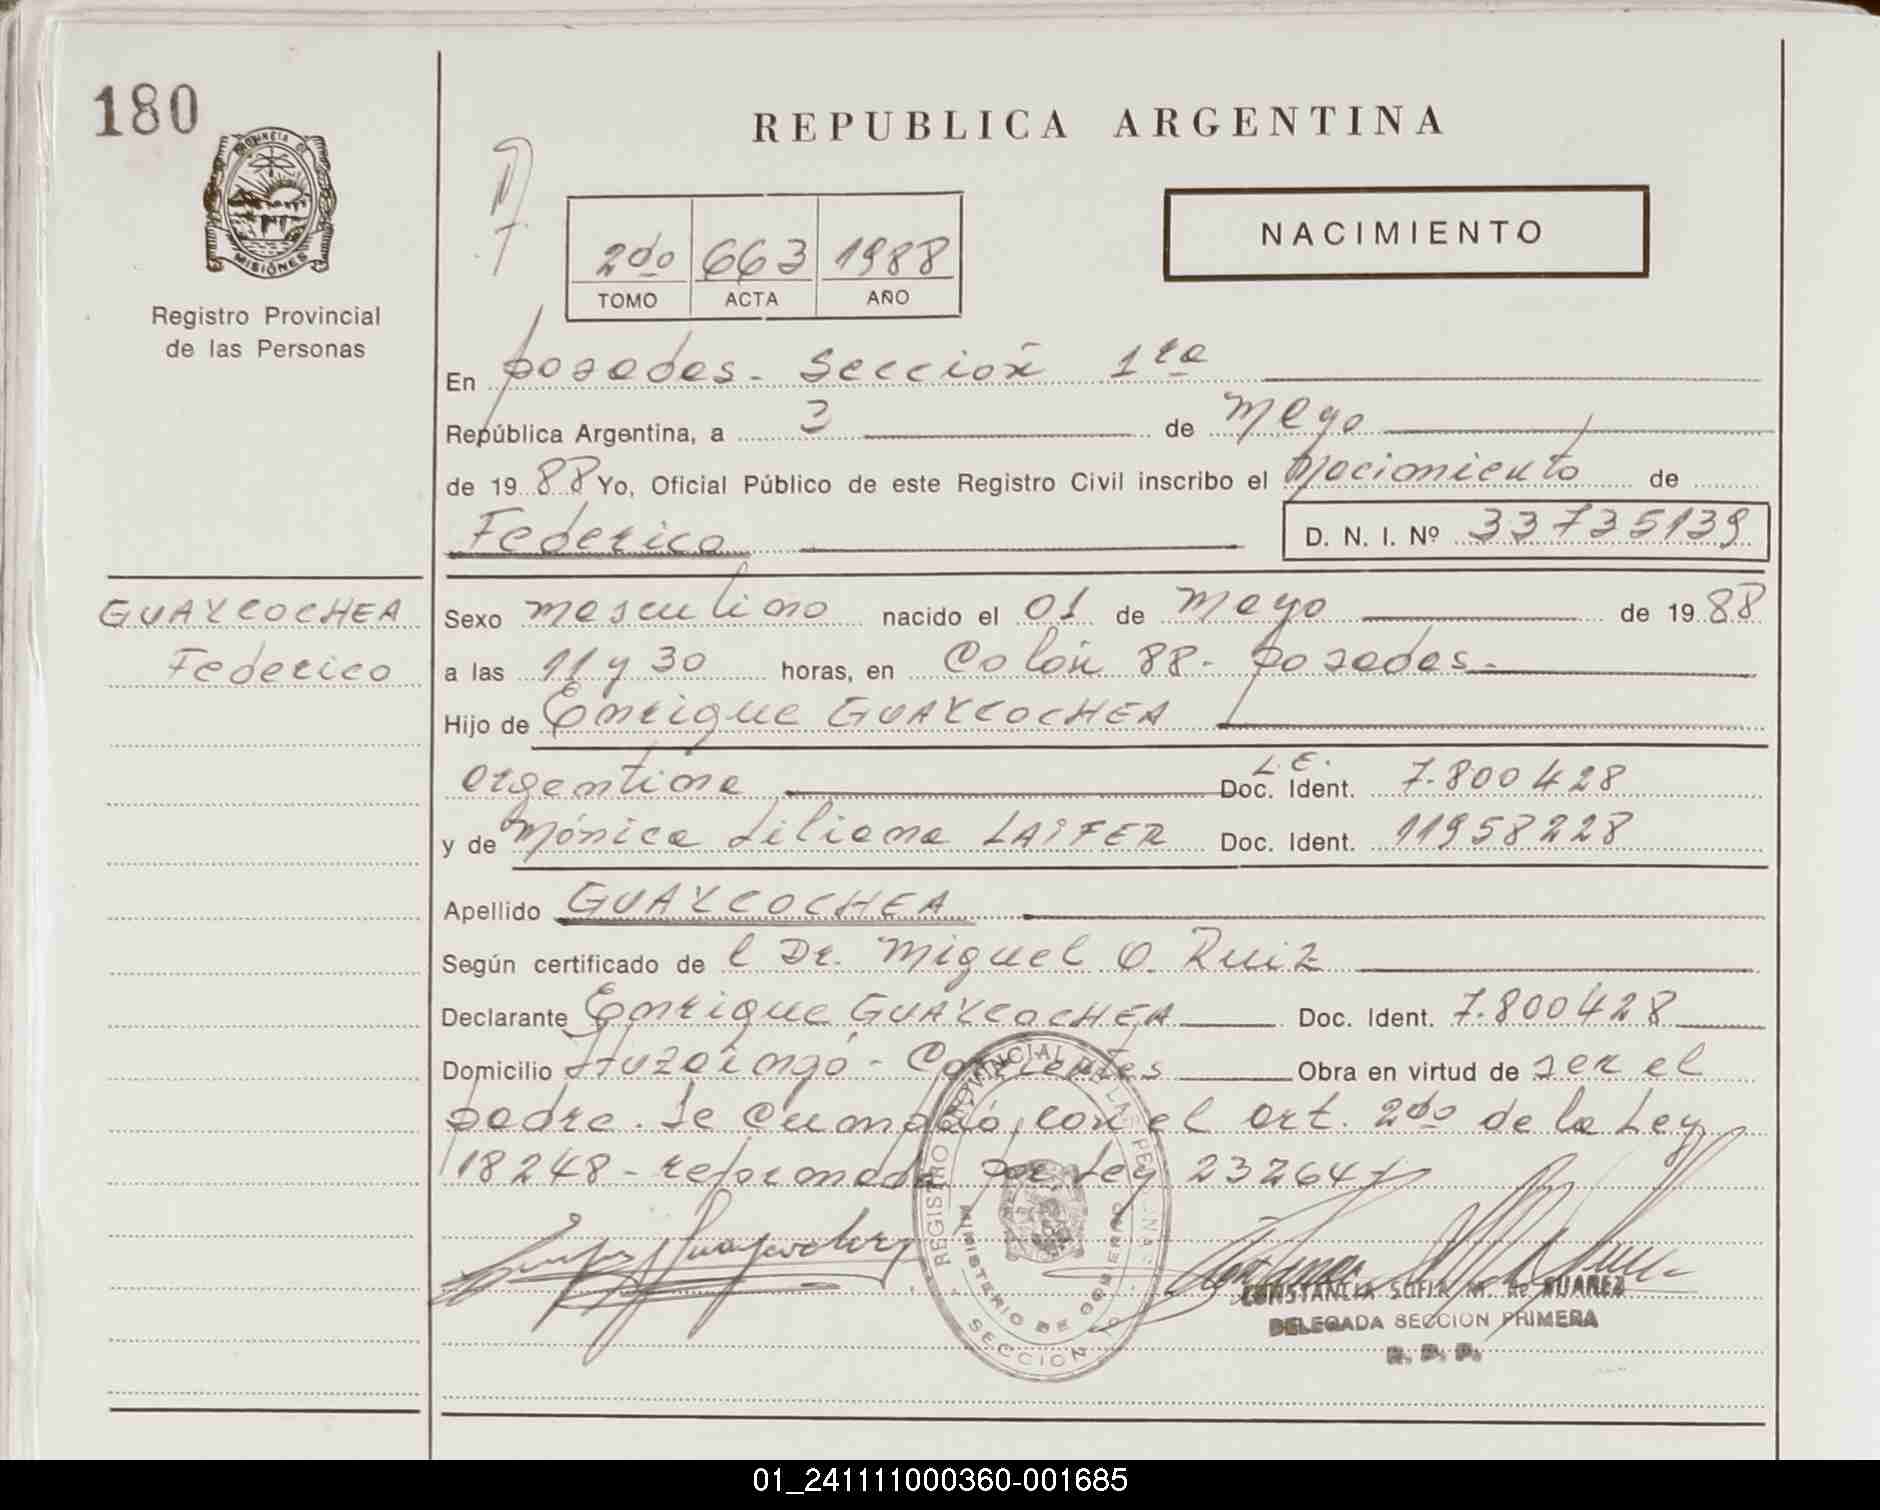 180
PROVINCIA DE
MISIONES
Registro Provincial
de las Personas
REPUBLICA ARGENTINA
NACIMIENTO
2do 663 1988
TOMO ACTA AÑO
En posadas - Sección 1ra
República Argentina, a 3 de mayo
de 1988 Yo, Oficial Público de este Registro Civil inscribo el nacimiento de
Federico D. N. I. Nº 33735139
GUAYCOCHEA
Federico
Sexo masculino nacido el 01 de mayo de 1988
a las 11 y 30 horas, en Colón 88 - posadas -
Hijo de Enrique GUAYCOCHEA
argentina L.E. Doc. Ident. 7.800428
y de Mónica Liliana LAIFER Doc. Ident. 11958228
Apellido GUAYCOCHEA
Según certificado de l Dr. Miguel O. Ruiz
Declarante Enrique GUAYCOCHEA Doc. Ident. 7.800428
Domicilio Ituzaingó - Corrientes Obra en virtud de ser el
padre. Se cumplió con el art. 2do de la Ley
18248 - reformada por Ley 23264
REGISTRO PROVINCIAL DE LAS PERSONAS
MINISTERIO DE GOBIERNO
SECCION
CONSTANCIA SOFIA M. de SUAREZ
DELEGADA SECCION PRIMERA
R. P. P.
01_241111000360-001685